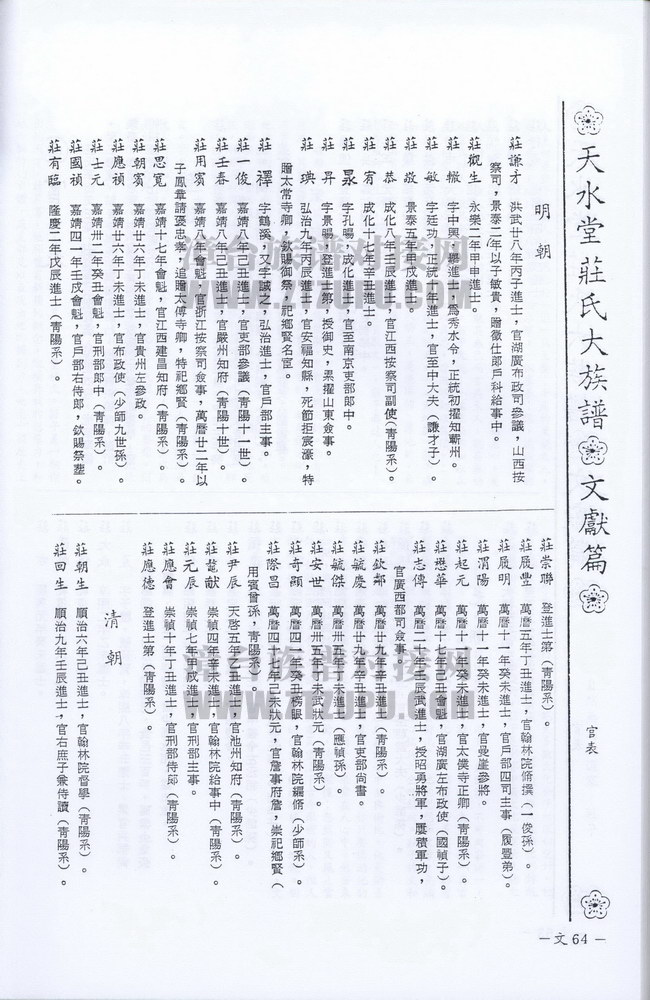 天水堂莊氏大族譜 文獻篇
官表
明朝
莊謙才 洪武廿八年丙子進士，官湖廣布政司參議，山西按
察司，景泰二年以子敏貴，贈徵仕郎戶科給事中。
莊觀生 永樂二年甲申進士。
莊橄 字中興，舉進士，爲秀水令，正統初擢知蘄州。
莊敏 字廷功，正統 年進士，官至中大夫（謙才子）。
莊敬 景泰五年甲戌進士。
莊恭 成化八年壬辰進士，官江西按察司副使（青陽系）。
莊宥 成化十七年辛丑進士。
莊 字孔暘，成化進士，官至南京吏部郎中。
莊昇 字景暘，登進士第，授御史，累擢山東僉事。
莊㻞 弘治九年丙辰進士，官安福知縣，死節拒宸濠，特
贈太常寺卿，欽賜御祭，祀鄉賢名宦。
莊襗 字鶴溪，又字誠之，弘治進士，官戶部主事。
莊一俊 嘉靖八年己丑進士，官吏部參議（青陽十一世）。
莊壬春 嘉靖八年己丑進士，官嚴州知府（青陽十世）。
莊用賓 嘉靖八年會魁，官浙江按察司僉事，萬曆廿二年以
子鳳章請褒忠孝，追贈太傅寺卿，特祀鄉賢（青陽系）。
莊思寬 嘉靖十七年會魁，官江西建昌知府（青陽系）。
莊朝賓 嘉靖廿六年丁未進士，官貴州左參政。
莊應禎 嘉靖廿六年丁未進士，官布政使（少師九世孫）。
莊士元 嘉靖卅二年癸丑會魁，官刑部郎中（青陽系）。
莊國禎 嘉靖四一年壬戌會魁，官戶部右侍郎，欽賜祭塟。
莊有臨 隆慶二年戊辰進士（青陽系）。
莊崇聯 登進士第（青陽系）。
莊履豐 萬曆五年丁丑進士，官翰林院脩撰（一俊孫）。
莊履明 萬曆十一年癸未進士，官戶部四司主事（履豐弟）。
莊渭陽 萬曆十一年癸未進士，官昊崖參將。
莊起元 萬曆十一年癸未進士，官太僕寺正卿（青陽系）。
莊懋華 萬曆十七年己丑會魁，官湖廣左布政使（國禎子）。
莊志傳 萬曆二十年壬辰武進士，授昭勇將軍，屢積軍功，
官廣西都司僉事。
莊欽鄰 萬曆廿九年辛丑進士（青陽系）。
莊毓慶 萬曆廿九年辛丑進士，官吏部尚書。
莊毓傑 萬曆卅五年丁未進士（應禎孫）。
莊安世 萬曆卅五年丁未武狀元（青陽系）。
莊奇顯 萬曆四一年癸丑榜眼，官翰林院編脩（少師系）。
莊際昌 萬曆四十七年己未狀元，官詹事府詹，崇祀鄉賢（
用賓曾孫，青陽系）。
莊尹辰 天啓五年乙丑進士，官池州知府（青陽系）。
莊鼇献 崇禎四年辛未進士，官翰林院給事中（青陽系）。
莊元辰 崇禎七年甲戌進士，官刑部主事。
莊應會 崇禎十年丁丑進士，官刑部侍郎（青陽系）。
莊應德 登進士第（青陽系）。
清朝
莊朝生 順治六年己丑進士，官翰林院督學（青陽系）。
莊回生 順治九年壬辰進士，官右庶子兼侍讀（青陽系）。
－文64－
漳台族谱对接网
WWW.ZTZUPU.COM
漳台族谱对接网
WWW.ZTZUPU.COM